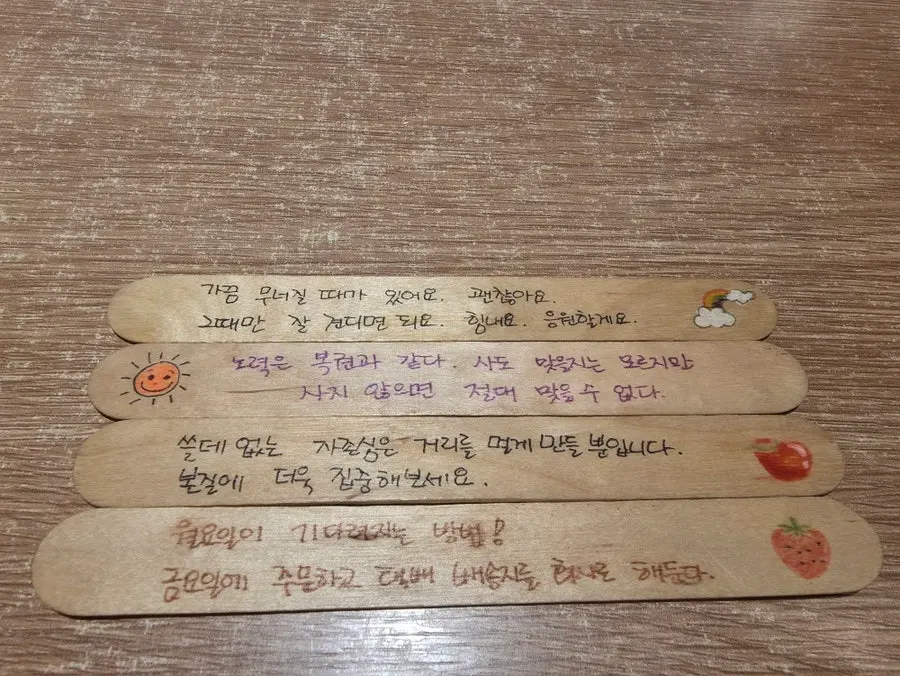 가끔 무너질 때가 있어요. 괜찮아요.
그때만 잘 견디면 되요. 힘내요. 응원할게요.
노력은 복권과 같다. 사도 맞을지는 모르지만
사지 않으면 절대 맞을 수 없다.
쓸데 없는 자존심은 거리를 멀게 만들 뿐입니다.
본질에 더욱 집중해보세요.
월요일이 기다려지는 방법!
금요일에 주문하고 택배 배송지를 회사로 해둔다.